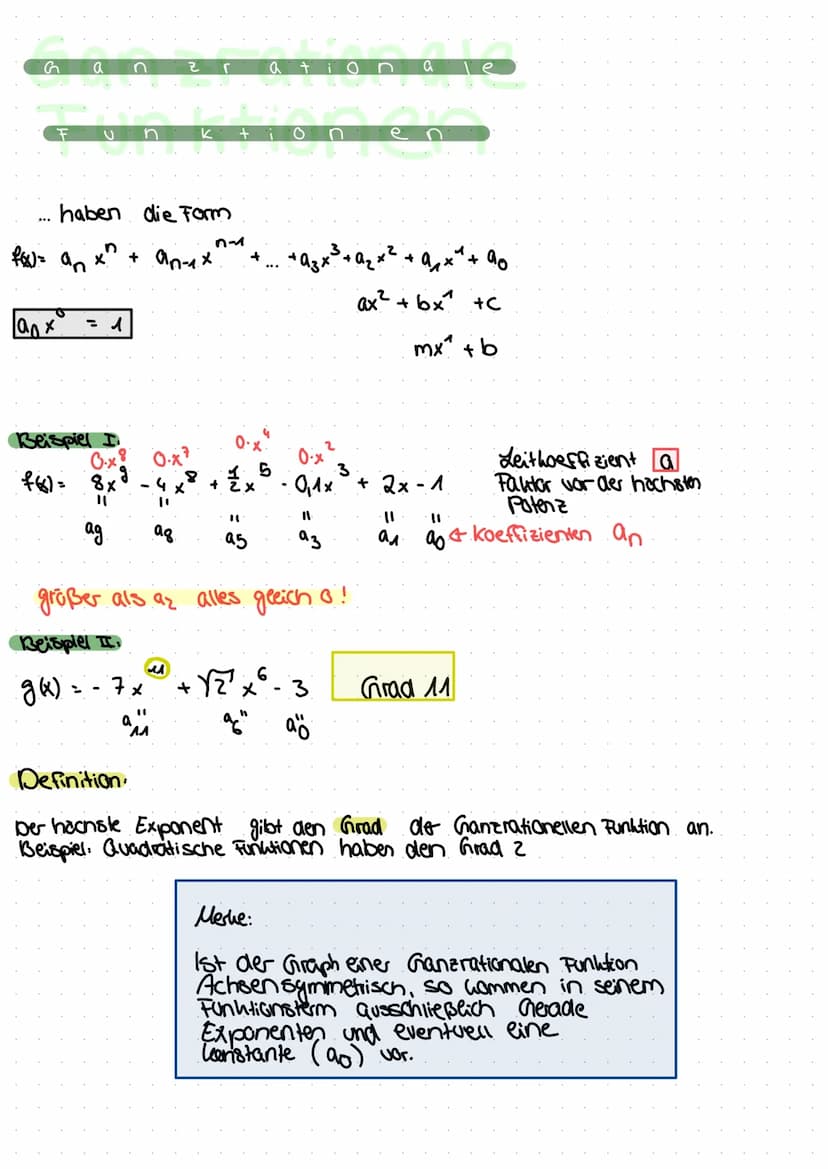 Ganzrationale
Funktionen
... haben die Form
f(x)= aₙ xⁿ + aₙ₋₁ x ⁿ⁻¹ + ... + a₃x³ + a₂x² + a₁x¹ + a₀
ax² + bx¹ + c
a₀ x⁰ = 1
mx¹ + b
Beispiel I.
0·x⁸ 0·x⁷ 0·x⁴ 0·x²
f(x)= 8x⁹ - 4x⁸ + ½x⁵ - 0,1x³ + 2x - 1
a₉ a₈ a₅ a₃ a₁ a₀ ← koeffizienten aₙ
Leitkoeffizient a
Faktor vor der höchsten
Potenz
größer als a₂ alles gleich 0!
Beispiel II.
g(x) = - 7x¹¹ + √2 x⁶ - 3 Grad 11
a₁₁ a₆ a₀
Definition:
Der höchste Exponent gibt den Grad der Ganzrationellen Funktion an.
Beispiel: Quadratische Funktionen haben den Grad 2
Merke:
Ist der Graph einer Ganzrationalen Funktion
Achsensymmetrisch, so kommen in seinem
Funktionsterm ausschließlich Gerade
Exponenten und eventuell eine
konstante (a₀) vor.